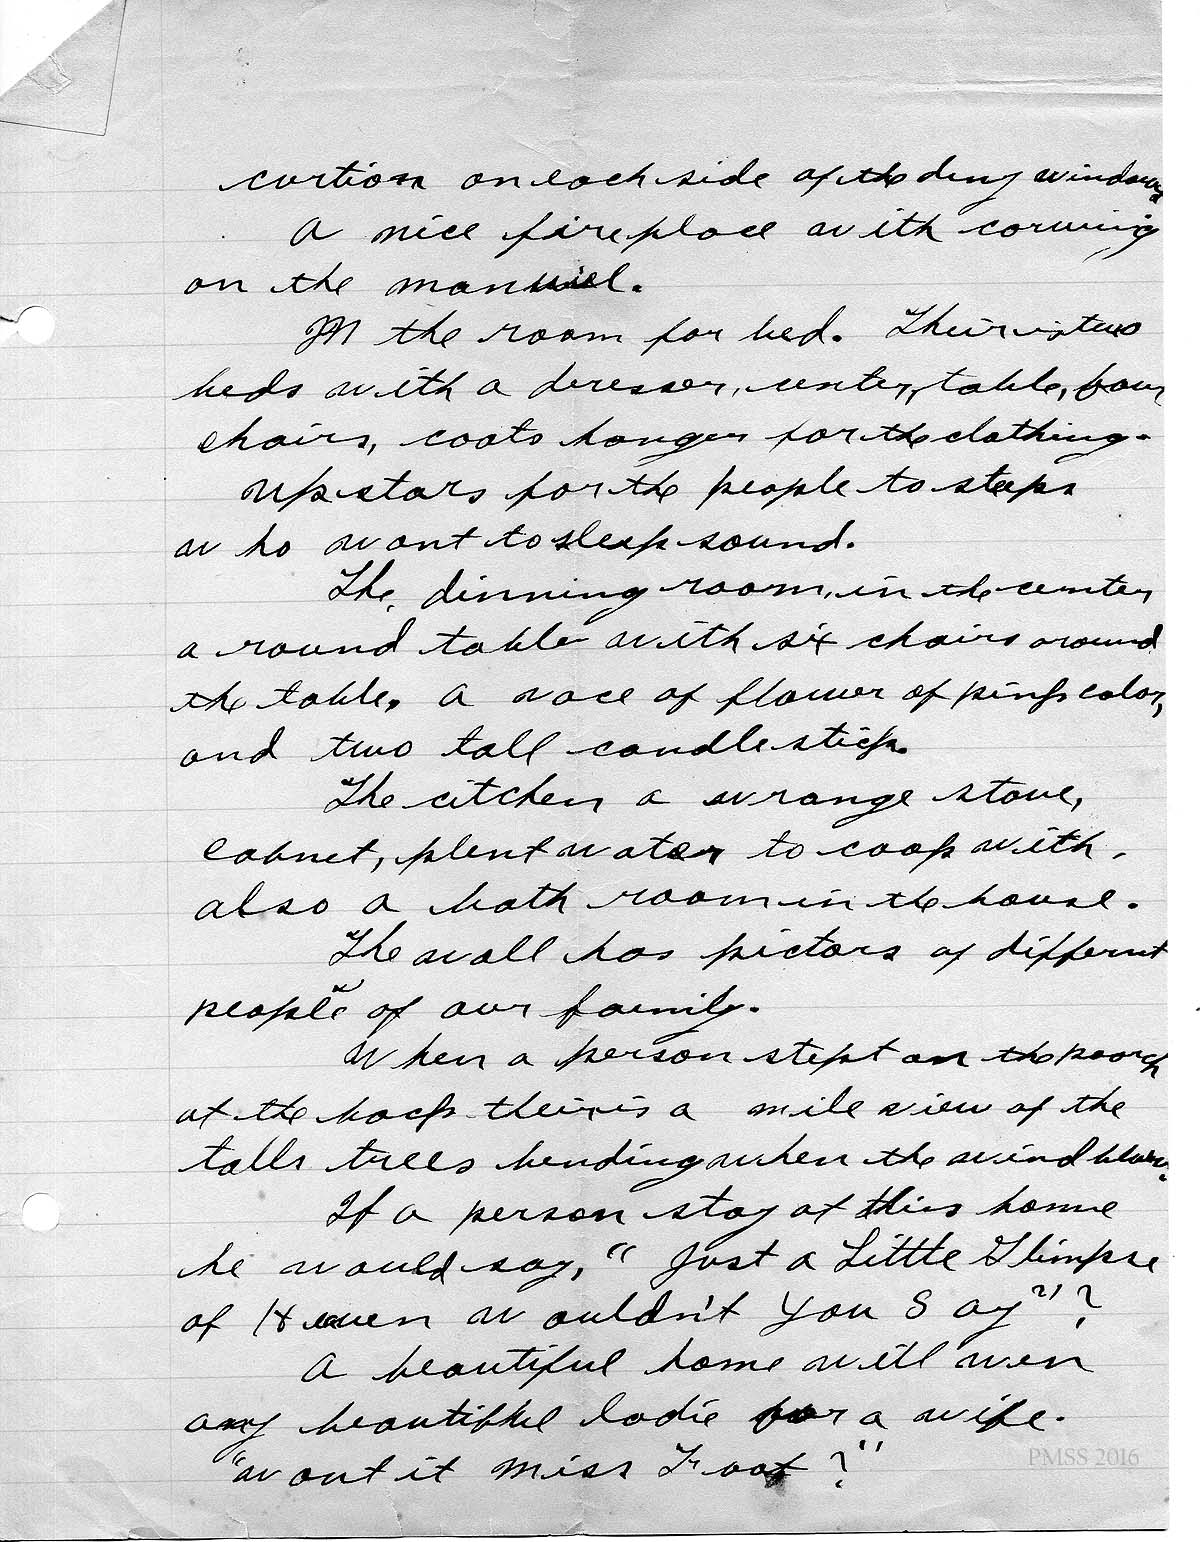 curtion on each side of the deny windows.
A nice fireplace with corwing
on the mantel.
In the room for bed. Their is two
beds with a dresser, center, table, four
chairs, coats hanger for the clothing.
Up stars for the people to steps
who want to sleep sound.
The, dinning room, in the center
a round table with six chairs around
the table. A vace of flower of pink color,
and two tall candle stick.
The citchen a wrange stove,
cabnet, plent water to cook with.
also a bath room in the house.
The wall has pictors of different
people of our family.
When a person stept on the poorch
at the back their is a mile view of the
talls trees bending when the wind blows.
If a person stay at this home
he would say, "Just a Little Glimpse
of Heaven wouldn't You Say"?
A beautiful home will win
any beautiful ladie for a wife.
"Wont it Miss Root?"
PMSS 2016